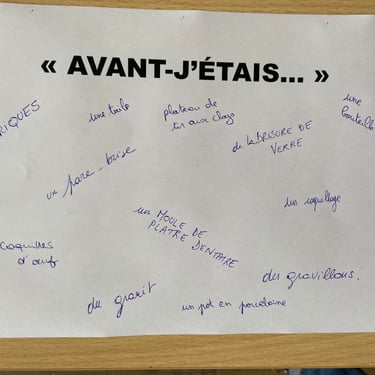 « AVANT-J'ÉTAIS... »
RIQUES
une tuile
plateau de
tir aux clays
une
bouteille
de la BRISURE DE
VERRE
un pare-brise
un coquillage
un MOULE DE
PLATRE DENTAIRE
coquilles
d'œuf
du granit
un pot en porcelaine
des gravillons.